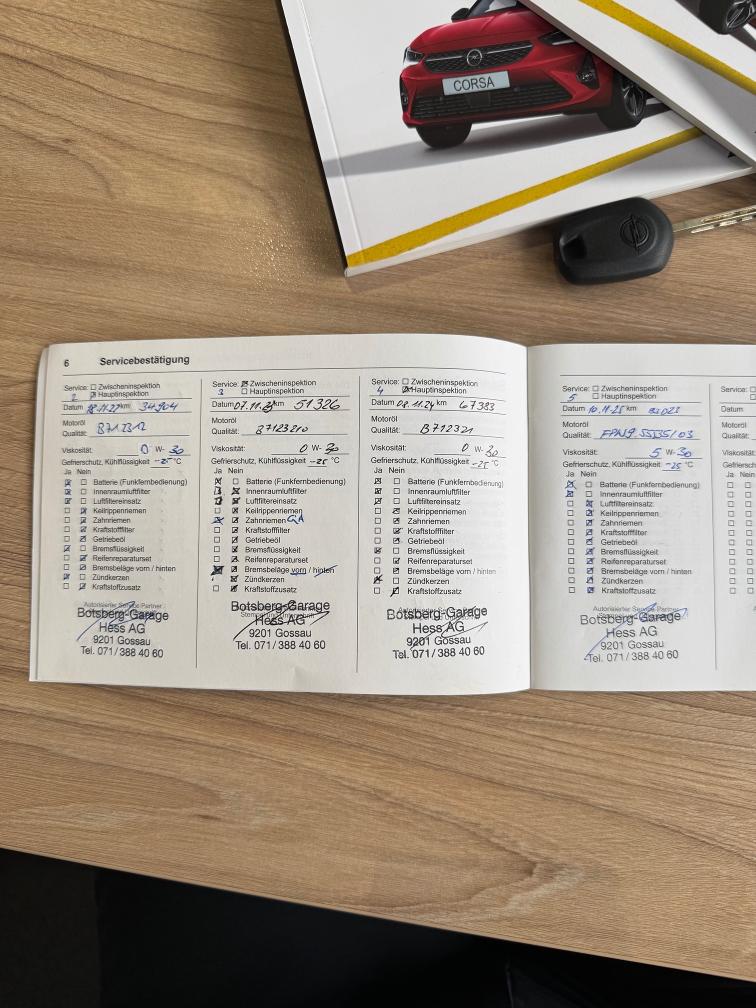 CORSA
6 Servicebestätigung
Service: Zwischeninspektion
2 Hauptinspektion
Datum 18.11.22 km 34904
Motoröl
Qualität: B712312
Viskosität: 0 W- 30
Gefrierschutz, Kühlflüssigkeit -25 °C
Ja Nein
Batterie (Funkfernbedienung)
Innenraumluftfilter
Luftfiltereinsatz
Keilrippenriemen
Zahnriemen
Kraftstofffilter
Getriebeöl
Bremsflüssigkeit
Reifenreparaturset
Bremsbeläge vorn / hinten
Zündkerzen
Kraftstoffzusatz
Autorisierter Service Partner
Botsberg-Garage
Hess AG
9201 Gossau
Tel. 071/388 40 60
Service: Zwischeninspektion
3 Hauptinspektion
Datum 07.11.23 km 51326
Motoröl
Qualität: B7123210
Viskosität: 0 W- 30
Gefrierschutz, Kühlflüssigkeit -25 °C
Ja Nein
Batterie (Funkfernbedienung)
Innenraumluftfilter
Luftfiltereinsatz
Keilrippenriemen
Zahnriemen
Kraftstofffilter
Getriebeöl
Bremsflüssigkeit
Reifenreparaturset
Bremsbeläge vorn / hinten
Zündkerzen
Kraftstoffzusatz
Botsberg-Garage
Hess AG
9201 Gossau
Tel. 071/388 40 60
Service: Zwischeninspektion
4 Hauptinspektion
Datum 08.11.24 km 67383
Motoröl
Qualität: B712321
Viskosität: 0 W- 30
Gefrierschutz, Kühlflüssigkeit -25 °C
Ja Nein
Batterie (Funkfernbedienung)
Innenraumluftfilter
Luftfiltereinsatz
Keilrippenriemen
Zahnriemen
Kraftstofffilter
Getriebeöl
Bremsflüssigkeit
Reifenreparaturset
Bremsbeläge vorn / hinten
Zündkerzen
Kraftstoffzusatz
Botsberg-Garage
Hess AG
9201 Gossau
Tel. 071/388 40 60
Service: Zwischeninspektion
5 Hauptinspektion
Datum 10.11.25 km
Motoröl
Qualität: FPW9.55535/03
Viskosität: 5 W- 30
Gefrierschutz, Kühlflüssigkeit -25 °C
Ja Nein
Batterie (Funkfernbedienung)
Innenraumluftfilter
Luftfiltereinsatz
Keilrippenriemen
Zahnriemen
Kraftstofffilter
Getriebeöl
Bremsflüssigkeit
Reifenreparaturset
Bremsbeläge vorn / hinten
Zündkerzen
Kraftstoffzusatz
Autorisierter Service Partner
Botsberg-Garage
Hess AG
9201 Gossau
Tel. 071/388 40 60
Service:
Datum
Motoröl
Qualität:
Viskosität:
Gefriersch
Ja Nein